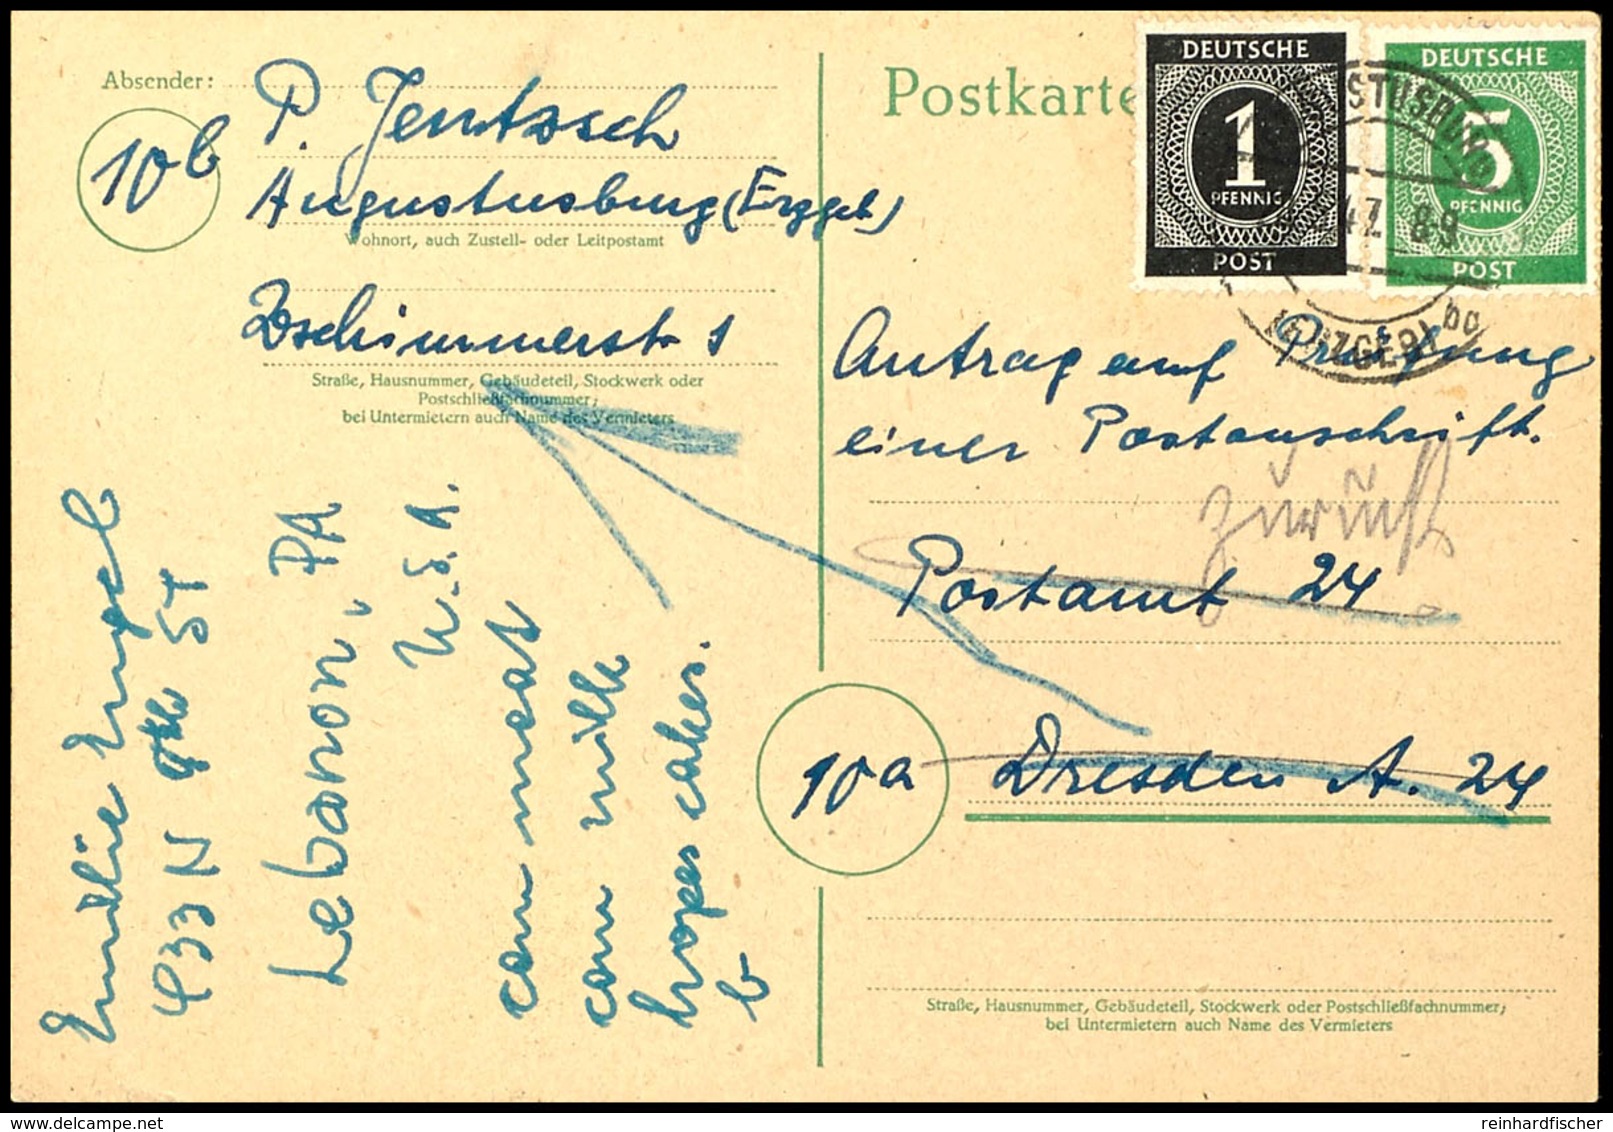 Absender:
P. Jentzsch
10b
Augustusburg (Erzgeb)
Wohnort, auch Zustell- oder Leitpostamt
Zschimmerstr 1
Straße, Hausnummer, Gebäudeteil, Stockwerk oder
Postschließfachnummer;
bei Untermietern auch Name des Vermieters
Postkarte
DEUTSCHE
1
PFENNIG
POST
DEUTSCHE
5
PFENNIG
POST
47 8-9
Antrag auf Prüfung
einer Postanschrift.
zurück
Postamt 24
10a
Dresden A. 24
Straße, Hausnummer, Gebäudeteil, Stockwerk oder Postschließfachnummer;
bei Untermietern auch Name des Vermieters
Emilie Engel
433 N 9th ST
Lebanon, PA
U.S.A.
can meat
can milk
cakes.
b
reinhardfischer